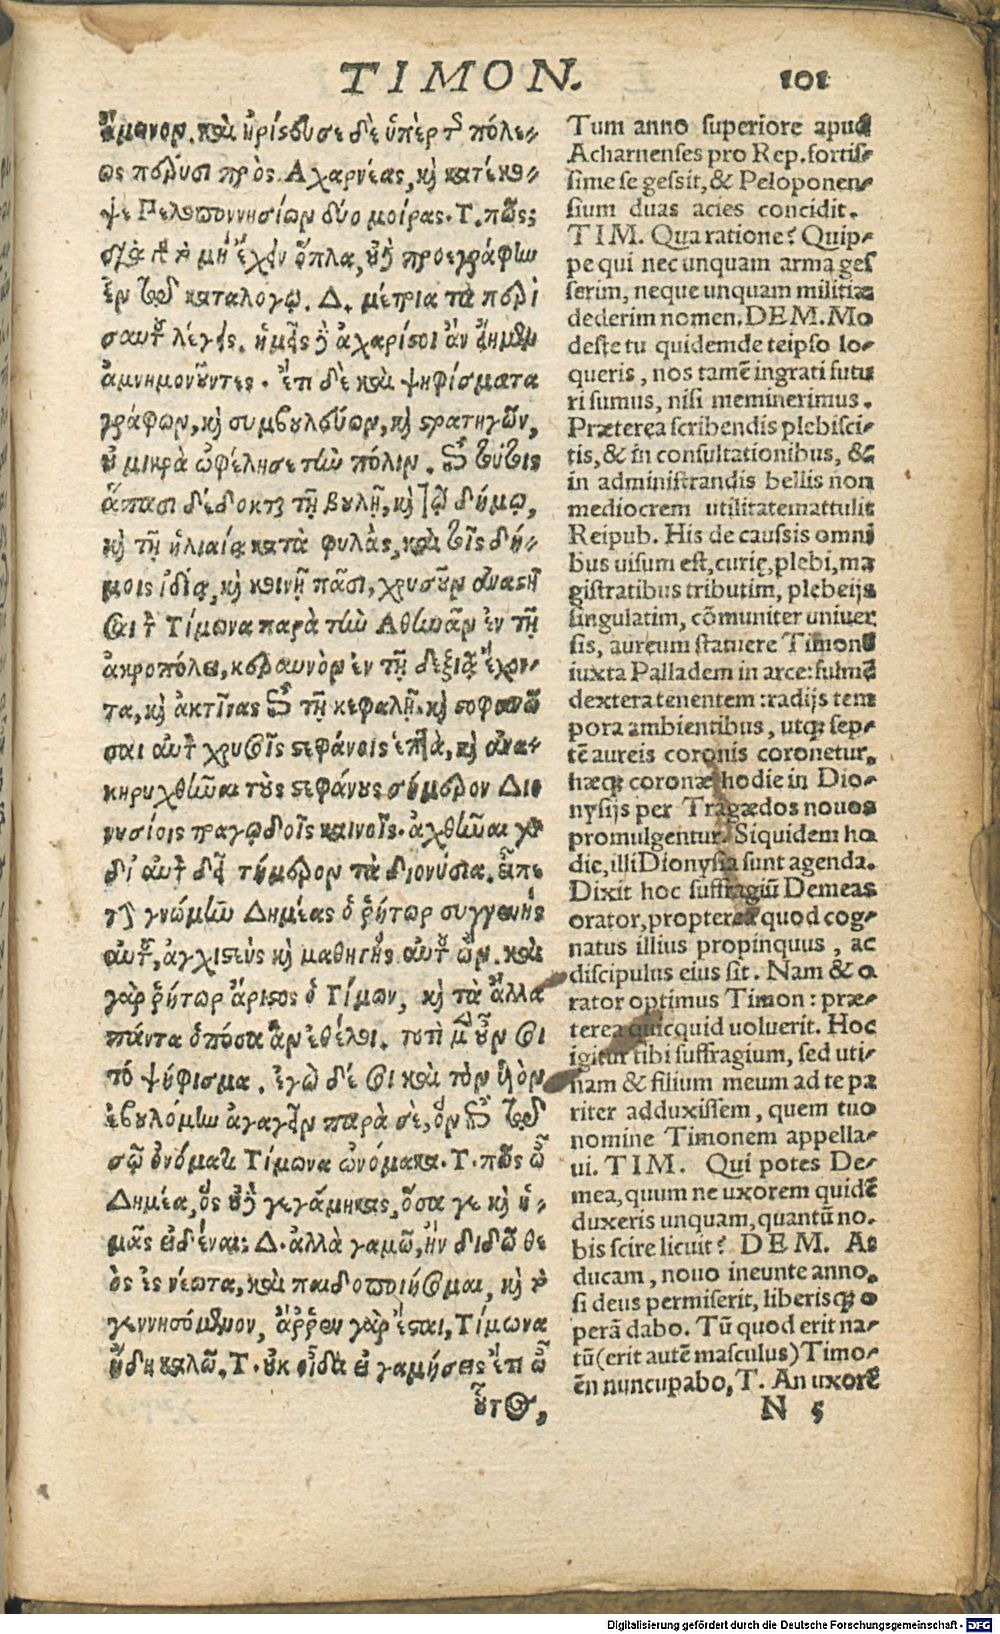 TIMON. 101
ἄμεινον. καὶ ἠρίστευσε δὲ ὑπὲρ τῆς πόλε-
ως πέρυσι πρὸς Ἀχαρνέας, κỳ κατέκο-
ψε Πελοποννησίων δύο μοίρας. Τ. πῶς;
διὰ τὸ μὴ ἔχειν ὅπλα, οὐδὲ προεγράφην
ἐν τῷ καταλόγῳ. Δ. μέτρια τὰ περὶ
σαυτοῦ λέγεις. ἡμεῖς δὲ ἀχάριστοι ἂν εἴημεν
ἀμνημονοῦντες. ἔτι δὲ καὶ ψηφίσματα
γράφων, καὶ συμβουλεύων, καὶ στρατηγῶν,
οὐ μικρὰ ὠφέλησε τὴν πόλιν. ἐπὶ τούτοις
ἅπασι δέδοκται τῇ βουλῇ, καὶ τῷ δήμῳ,
καὶ τῇ ἡλιαίᾳ κατὰ φυλὰς, καὶ τοῖς δή-
μοις ἰδίᾳ, καὶ κοινῇ πᾶσι, χρυσοῦν ἀναστῆ
σαι τὸν Τίμωνα παρὰ τὴν Ἀθηνᾶν ἐν τῇ
ἀκροπόλει, κεραυνὸν ἐν τῇ δεξιᾷ ἔχον-
τα, καὶ ἀκτῖνας ἐπὶ τῇ κεφαλῇ. καὶ στεφανῶ
σαι αὐτὸν χρυσοῖς στεφάνοις ἑπτὰ, καὶ ἀνα-
κηρυχθῆναι τοὺς στεφάνους σήμερον Διο
νυσίοις τραγῳδοῖς καινοῖς. ἀχθῆναι γὰρ
δι' αὐτὸν δεῖ τήμερον τὰ διονύσια. εἶπε
τὴν γνώμην Δημέας ὁ ῥήτωρ συγγενὴς
αὐτοῦ, ἀγχιστεὺς καὶ μαθητὴς αὐτοῦ ὤν. καὶ
γὰρ ῥήτωρ ἄριστος ὁ Τίμων, καὶ τὰ ἄλλα
πάντα ὁπόσα ἂν ἐθέλοι. τουτὶ μὲν οὖν σοι
τὸ ψήφισμα. ἐγὼ δέ σοι καὶ τὸν υἱὸν
ἐβουλόμην ἀγαγεῖν παρὰ σὲ, ὃν ἐπὶ τῷ
σῷ ὀνόματι Τίμωνα ὠνόμακα. Τ. πῶς ὦ
Δημέα, ὃς οὐδὲ γεγάμηκας, ὅσα γε καὶ ἡ-
μᾶς εἰδέναι; Δ. ἀλλὰ γαμῶ, ἢν διδῷ θε
ὸς ἐς νέωτα, καὶ παιδοποιήσομαι, καὶ τὸ
γεννησόμενον, ἄρρεν γὰρ ἔσται, Τίμωνα
ἤδη καλῶ. Τ. οὐκ οἶδα εἰ γαμήσεις ἔτι ὦ
οὗτος,
Tum anno superiore apud
Acharnenses pro Rep. fortis-
sime se gessit, & Peloponen-
sium duas acies concidit.
TIM. Qua ratione? Quip-
pe qui nec unquam arma ges
serim, neque unquam militiæ
dederim nomen. DEM. Mo
deste tu quidem de teipso lo-
queris, nos tamẽ ingrati futu
ri sumus, nisi meminerimus.
Præterea scribendis plebisci-
tis, & in consultationibus, &
in administrandis bellis non
mediocrem utilitatem attulit
Reipub. His de caussis omni
bus uisum est, curię, plebi, ma
gistratibus tributim, plebeijs
singulatim, cõmuniter univer
sis, aureum statuere Timonẽ
iuxta Palladem in arce: fulmẽ
dextera tenentem: radijs tem
pora ambientibus, utq; sep-
tẽ aureis coronis coronetur.
hæq; coronæ hodie in Dio-
nysijs per Tragædos nouos
promulgentur. Siquidem ho
die, illi Dionysia sunt agenda.
Dixit hoc suffragiũ Demeas
orator, propterea quod cog-
natus illius propinquus, ac
discipulus eius sit. Nam & o
rator optimus Timon: præ-
terea quicquid uoluerit. Hoc
igitur tibi suffragium, sed uti-
nam & filium meum ad te pa
riter adduxissem, quem tuo
nomine Timonem appella-
ui. TIM. Qui potes De-
mea, quum ne uxorem quidẽ
duxeris unquam, quantũ no.
bis scire licuit? DEM. At
ducam, nouo ineunte anno.
si deus permiserit, liberisq; o
perã dabo. Tũ quod erit na-
tũ (erit autẽ masculus) Timo-
ẽn nuncupabo, T. An uxorẽ
N 5
Digitalisierung gefördert durch die Deutsche Forschungsgemeinschaft - DFG